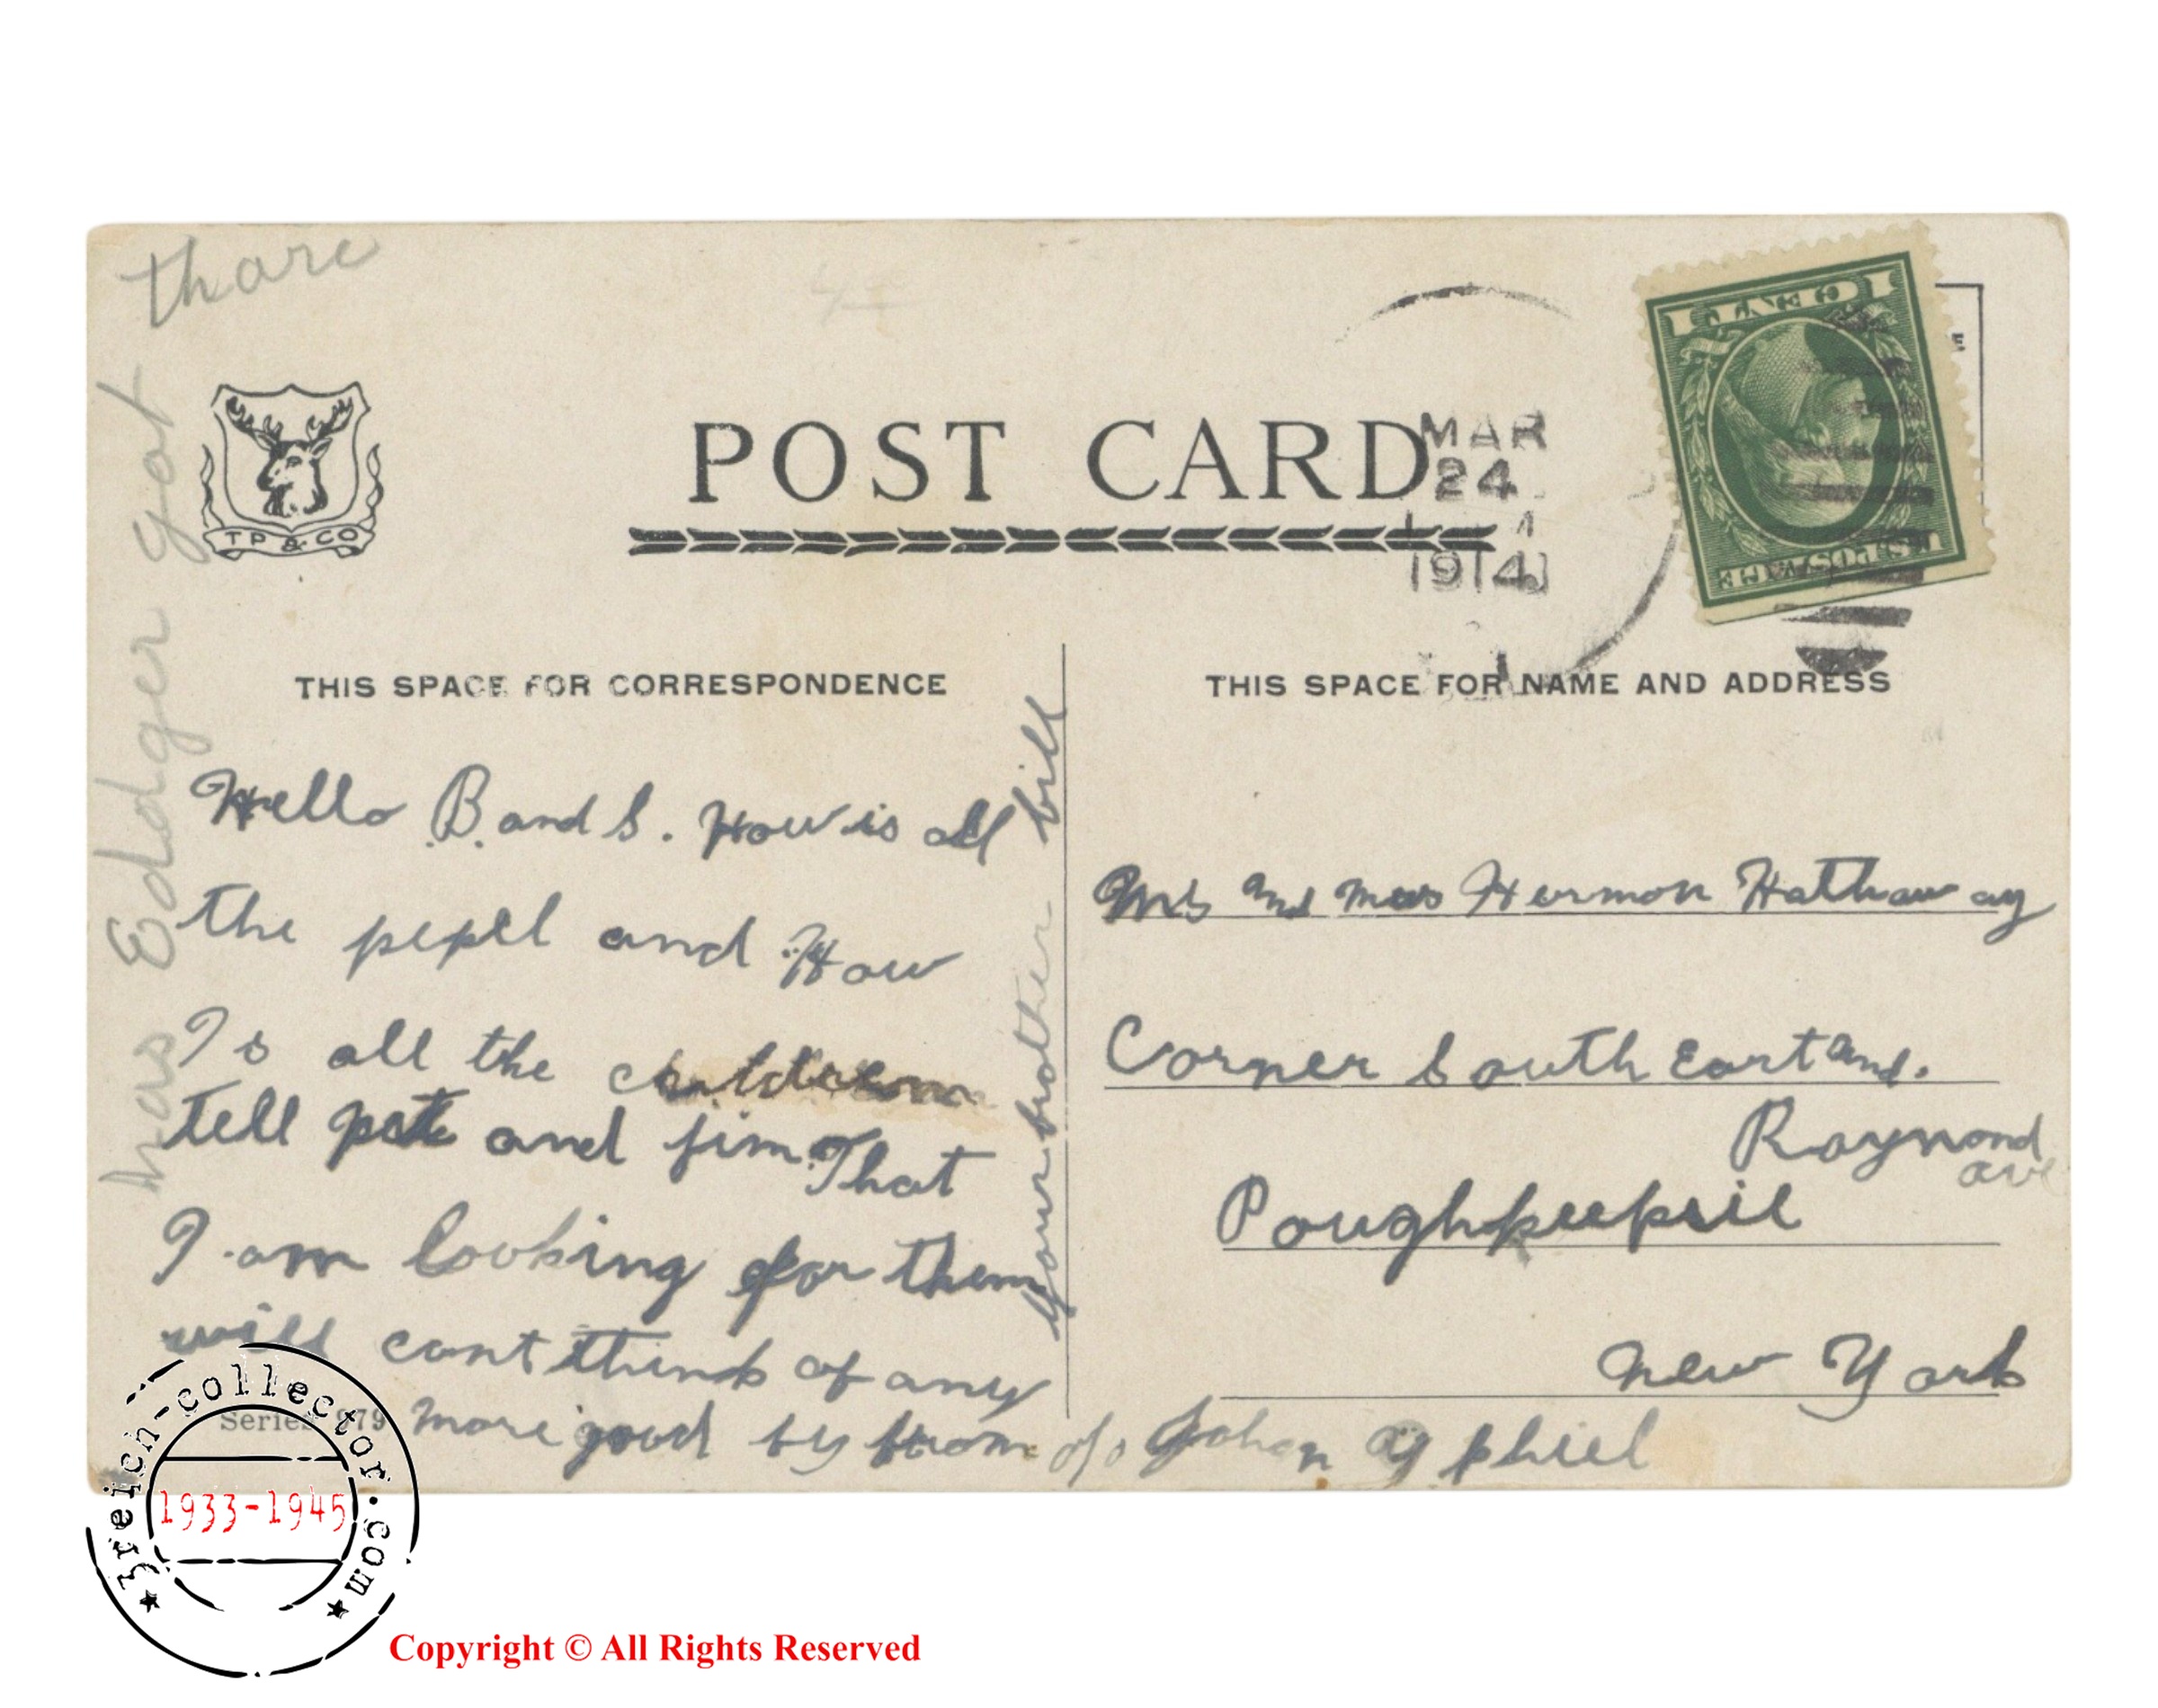 thare
has Eddger got
TP & CO
POST CARD
MAR
24
1914
1 CENT 1
U.S. POSTAGE
THIS SPACE FOR CORRESPONDENCE
THIS SPACE FOR NAME AND ADDRESS
Hello B. and S. How is all
the pepel and How
Is all the
tell pete and jim That
I am looking for them
will cant think of any
more good by from
your brother bill
Series 979
and Hermon Hathaway
Corner South East and.
Raymond
ave
Poughkeepsie
New York
c/o
3reich-collector.com
1933-1945
Copyright © All Rights Reserved